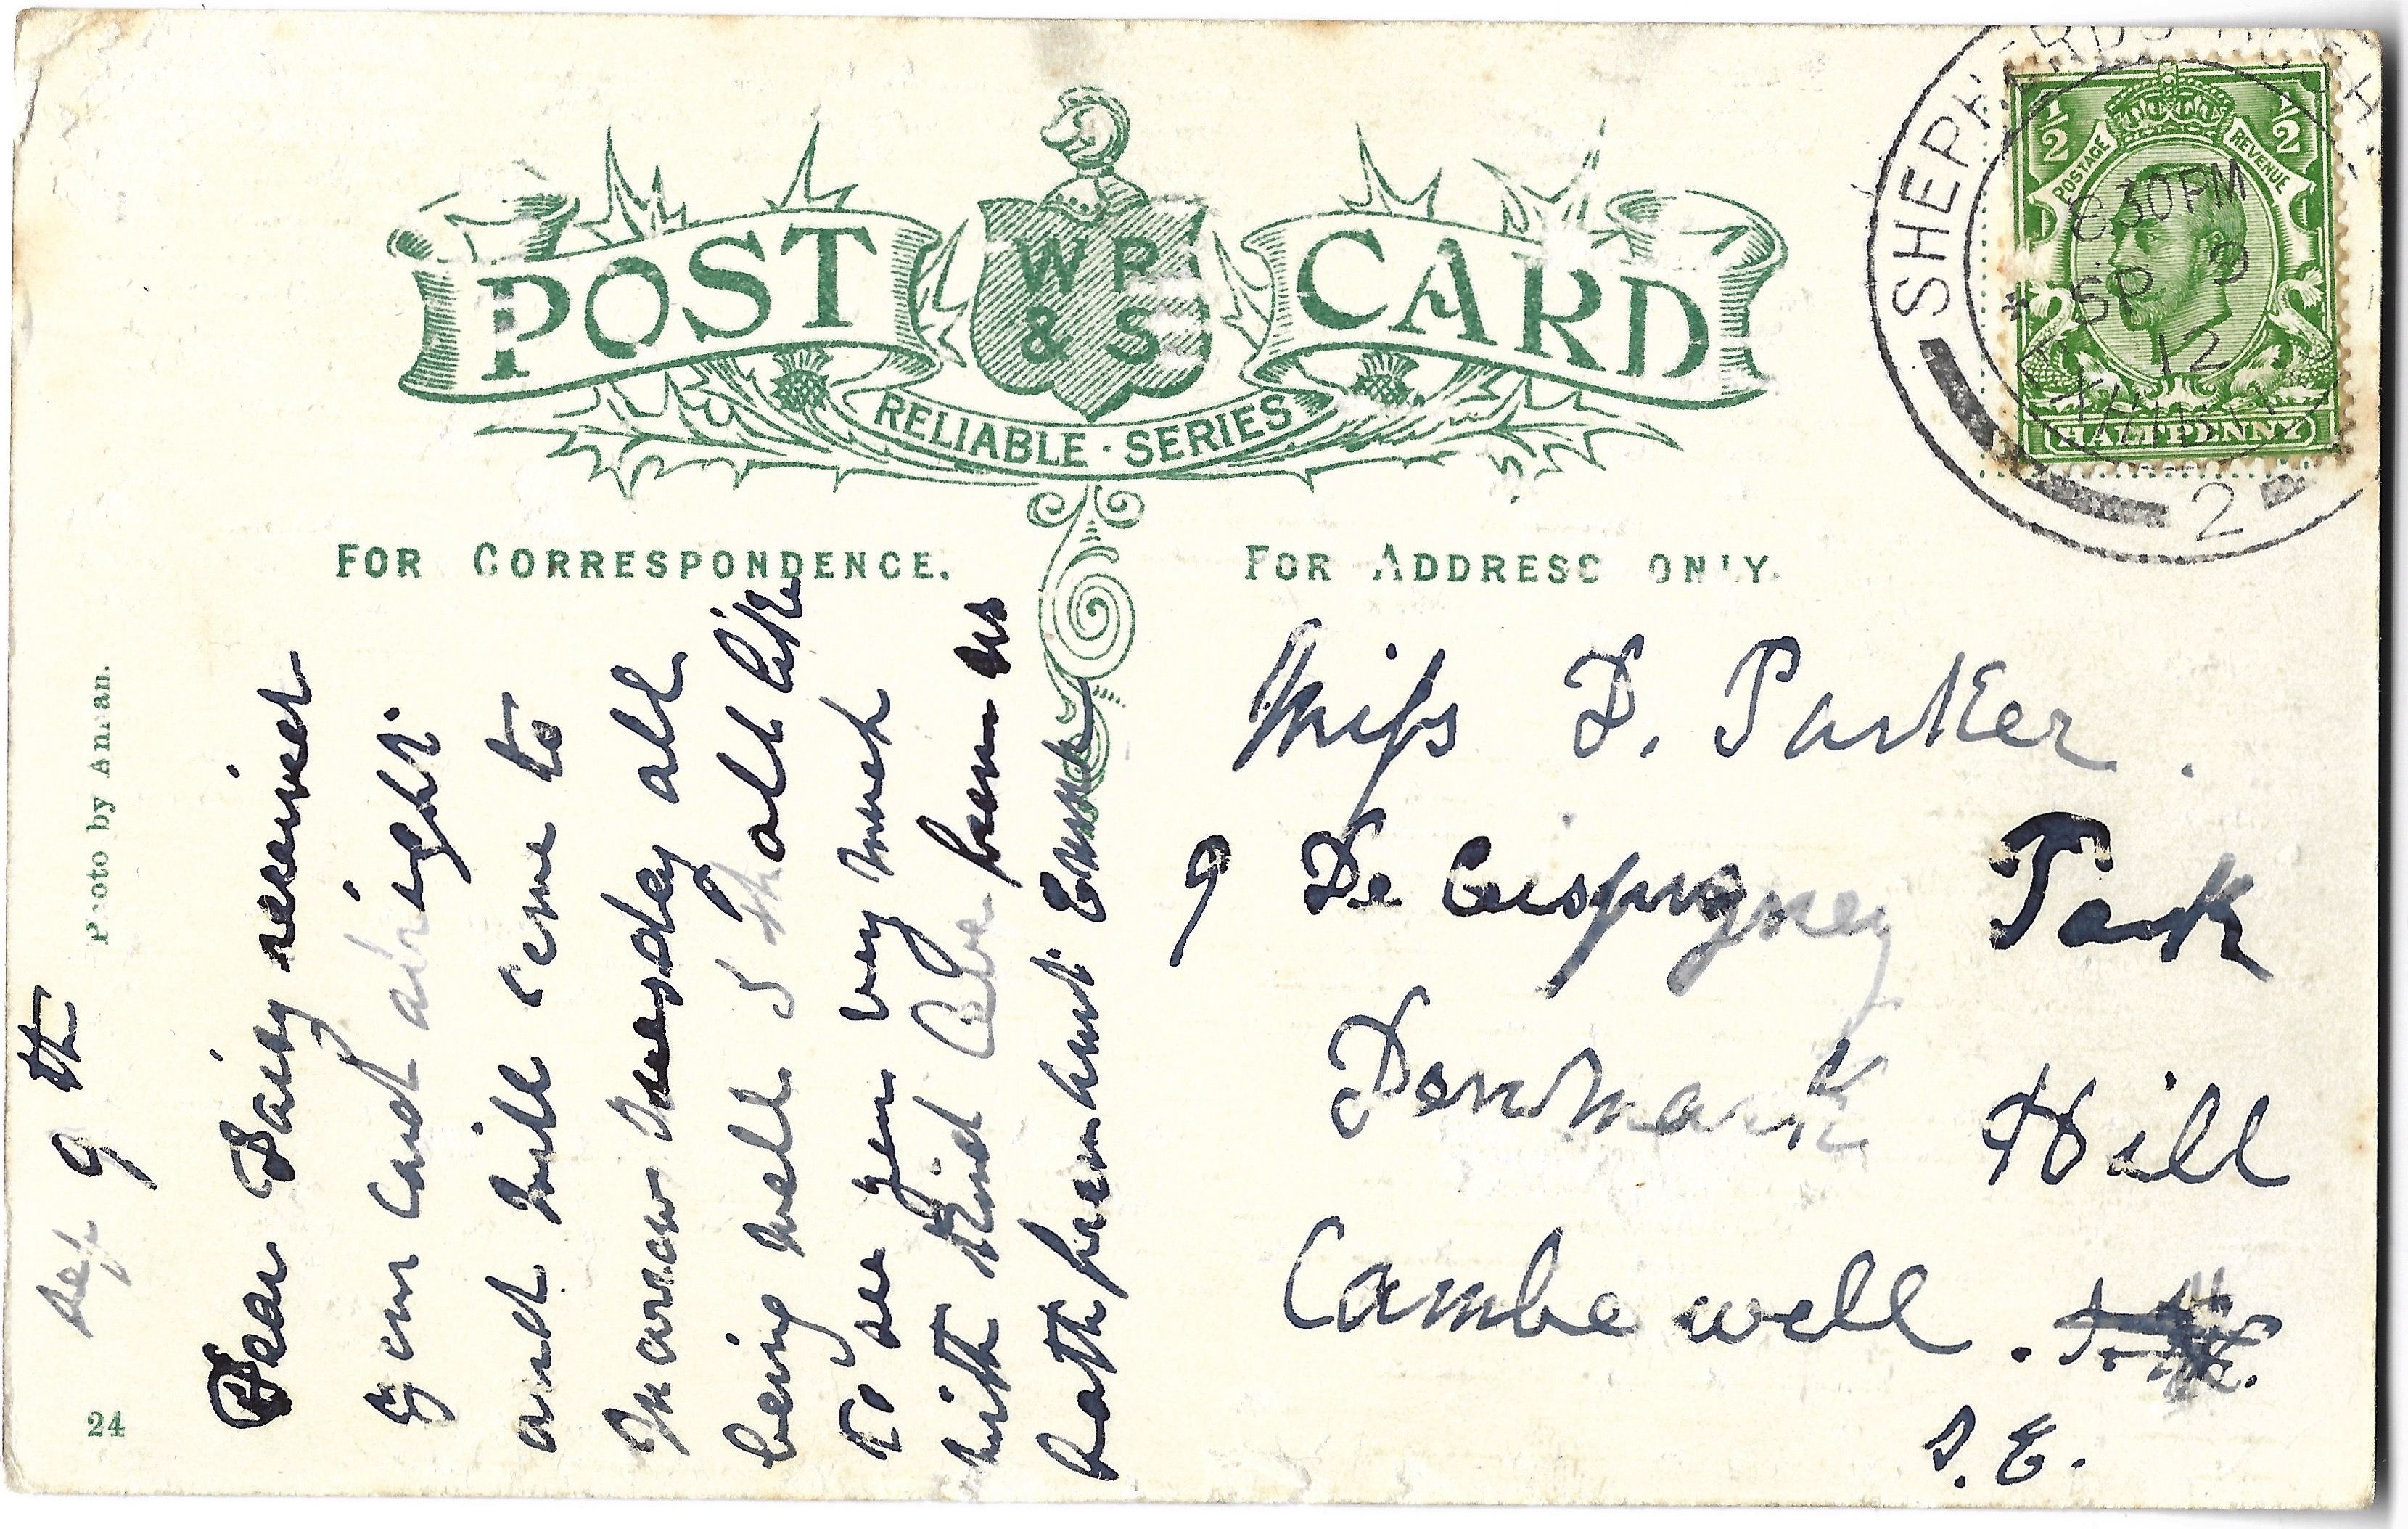 POST CARD
WR
& S
RELIABLE · SERIES
FOR CORRESPONDENCE.
FOR ADDRESS ONLY.
SHEPHERDS BUSH
8 30 PM
SP 9
12
2
1/2
1/2
POSTAGE
REVENUE
HALFPENNY
Photo by Annan.
24
Sep 9 th
Dear Daisy received
your card alright
and will come to
Morrow Tuesday all
being well I th all like
to see you very much
with kind Love from us
both from Aunt
Miss D. Parker.
9 De Crespigney Park
Denmark Hill
Cambewell.
S.E.